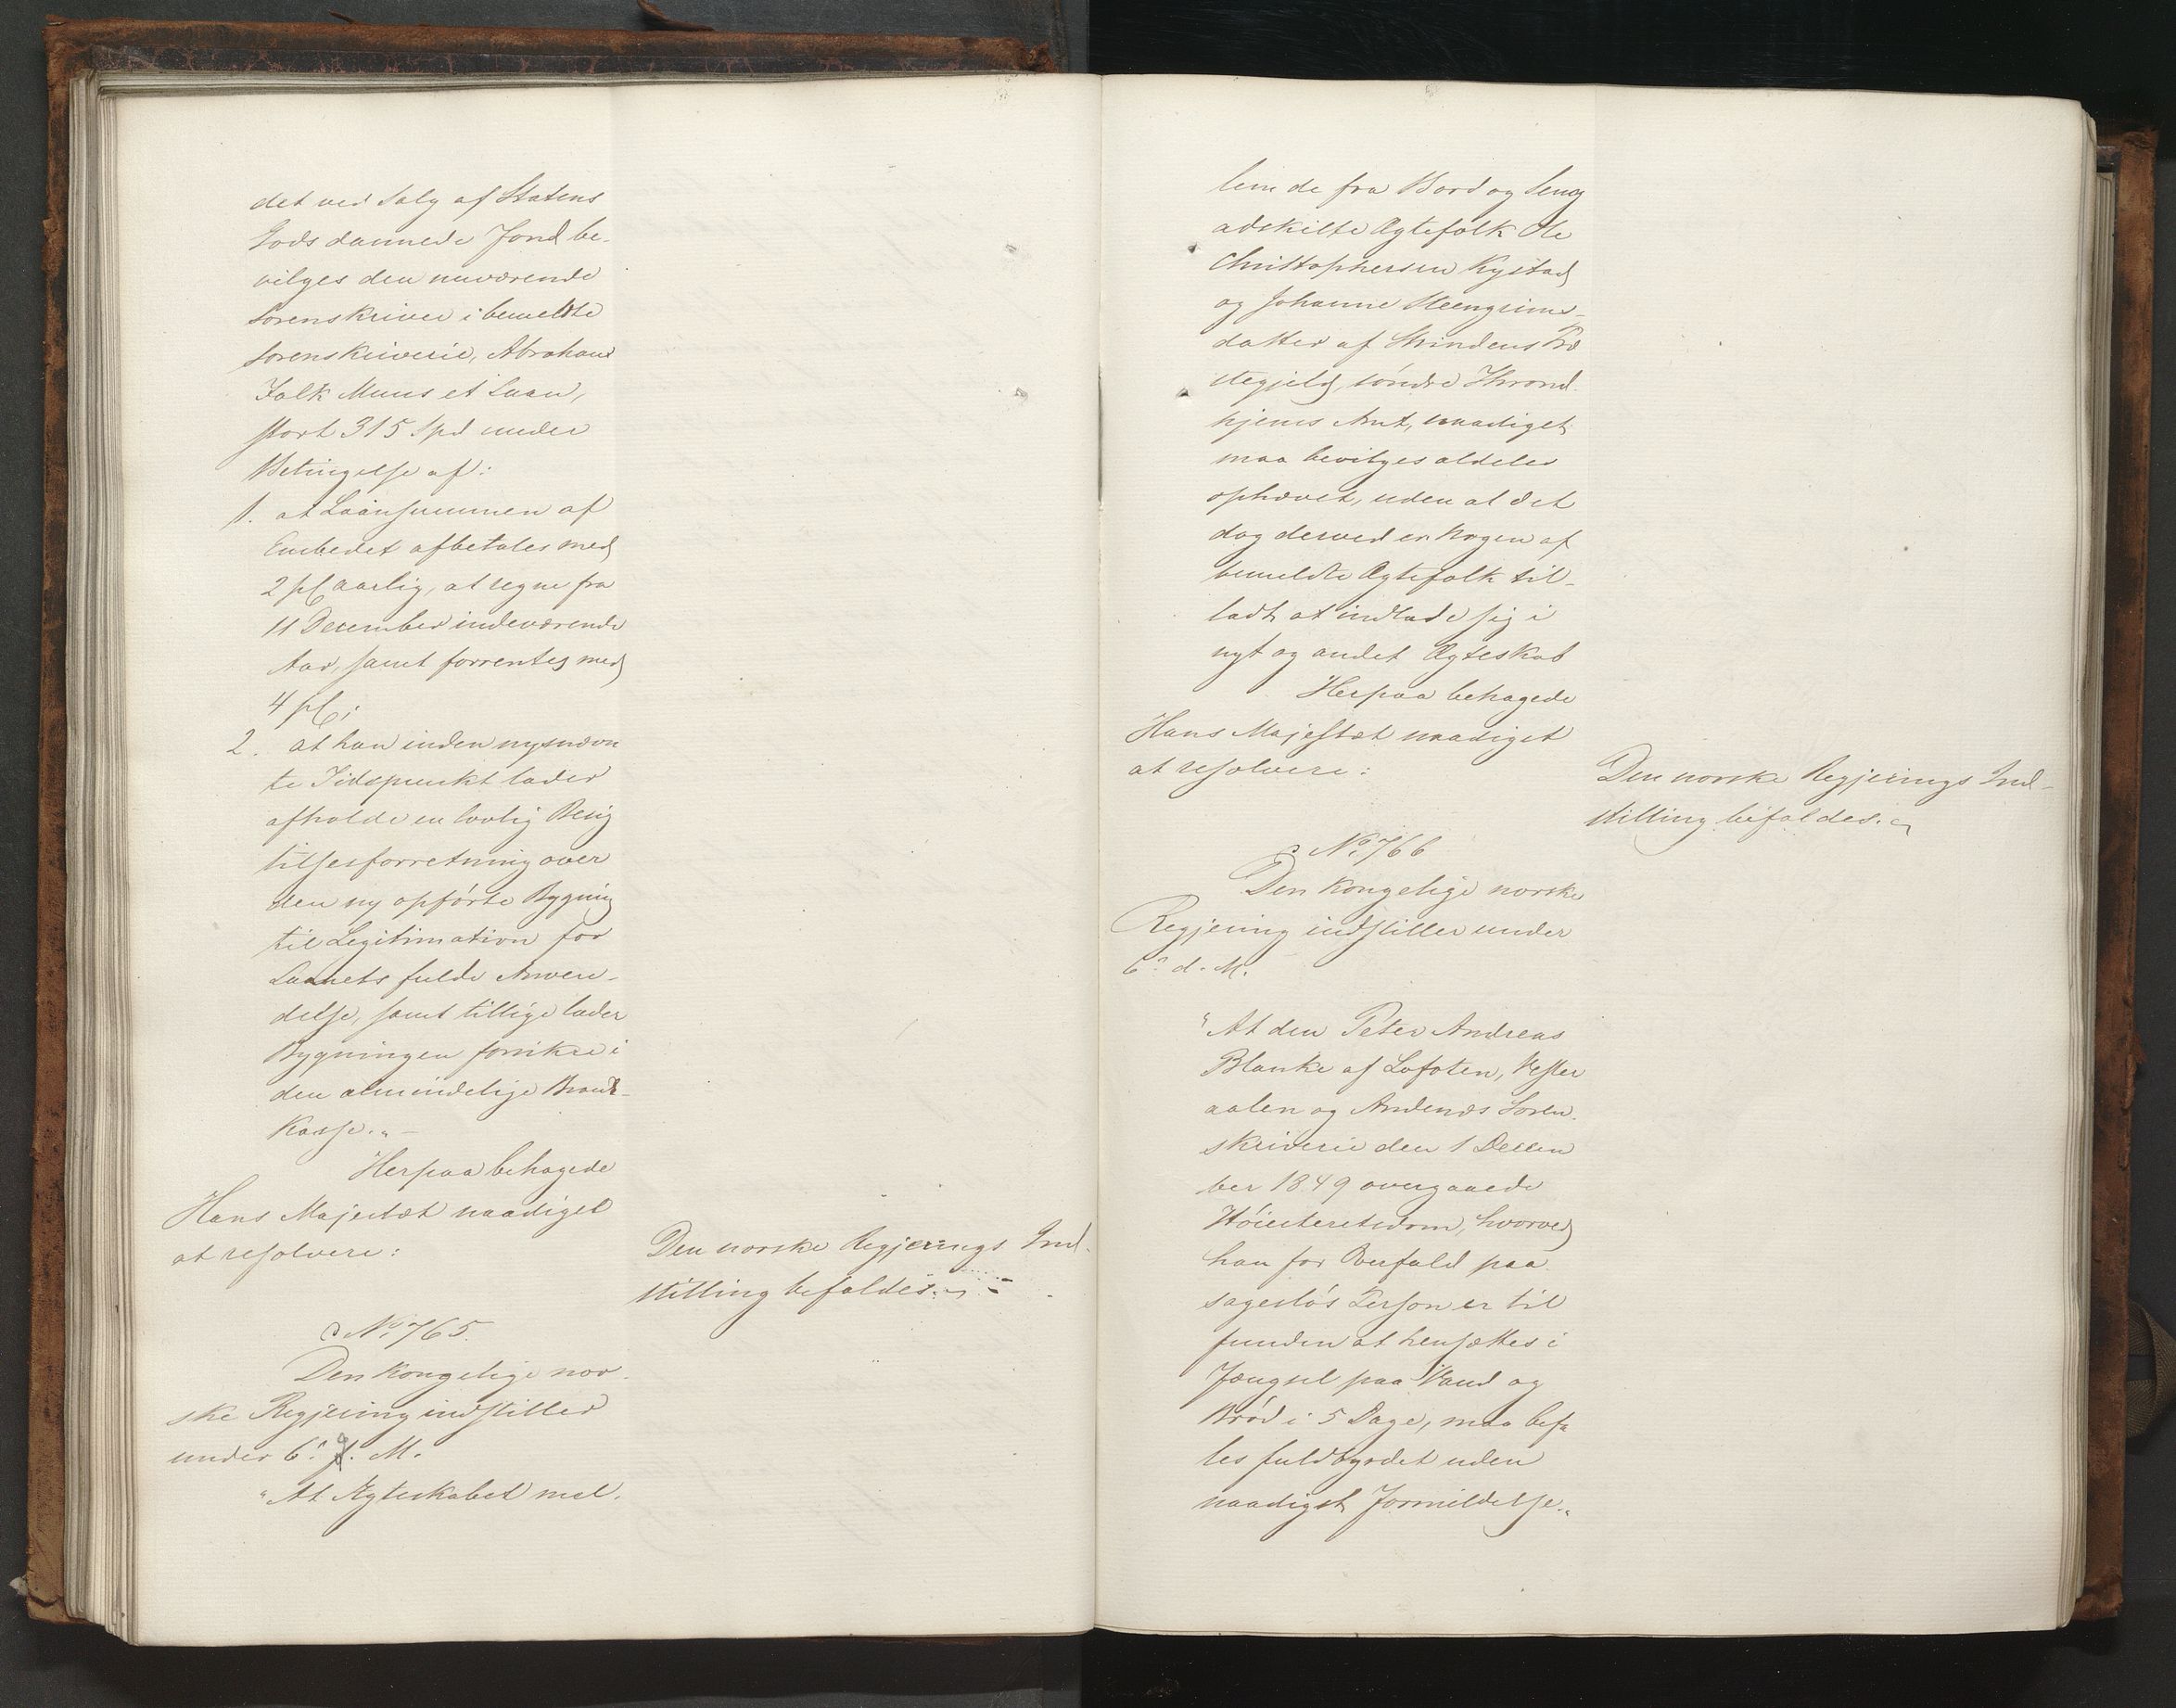 det ved Salg af Statens
Gods dannede Fond be-
vilges den nuværende
Sorenskriver i bemeldte
Sorenskriverie, Abraham
Falk Muus et Laan,
stort 315 Spd under
Betingelse af:
1. at Laansummen af
Embedet afbetales med
2 pC aarlig, at regne fra
11 December indeværende
Aar, samt forrentes med
4 pC;
2. at han inden nysnævn
te Tidspunkt lader
afholde en lovlig Besig
tilsesforretning over
den ny opførte Bygning
til Legitimation for
Laanets fulde Anven-
delse, samt tillige lader
Bygningen forsikre i
den almindelige Brand-
Kasse."-
Herpaa behagede
Hans Majestæt naadigst
at resolvere:
Den norske Regjerings Ind-
stilling bifaldes.
No 765.
Den kongelige nor-
ske Regjering indstiller
under 6te d. M.
"At Ægteskabet mel-
lem de fra Bord og Seng
adskilte Ægtefolk Ole
Christophersen Kystad
og Johanne Steengrims-
datter af Strindens Præ
stegjeld, søndre Thrond-
hjems Amt, naadigst
maa bevilges aldeles
ophævet, uden at det
dog derved er Nogen af
bemeldte Ægtefolk til-
ladt at indlade sig i
nyt og andet Ægteskab
Herpaa behagede
Hans Majestæt naadigst
at resolvere:
Den norske Regjerings Ind-
stilling bifaldes.
No 766
Den Kongelige norske
Regjering indstiller under
6te d. M.
"At den Peter Andreas
Blanke af Lofoten, Vester
aalen og Andenæs Soren-
skriverie den 1 Decem
ber 1849 overgaaede
Høiesteretsdom, hvorved
han for Overfald paa
sagesløs Person er til
funden at hensættes i
Fængsel paa Vand og
Brød i 5 Dage, maa befa
les fuldbyrdet uden
naadigst Formildelse."